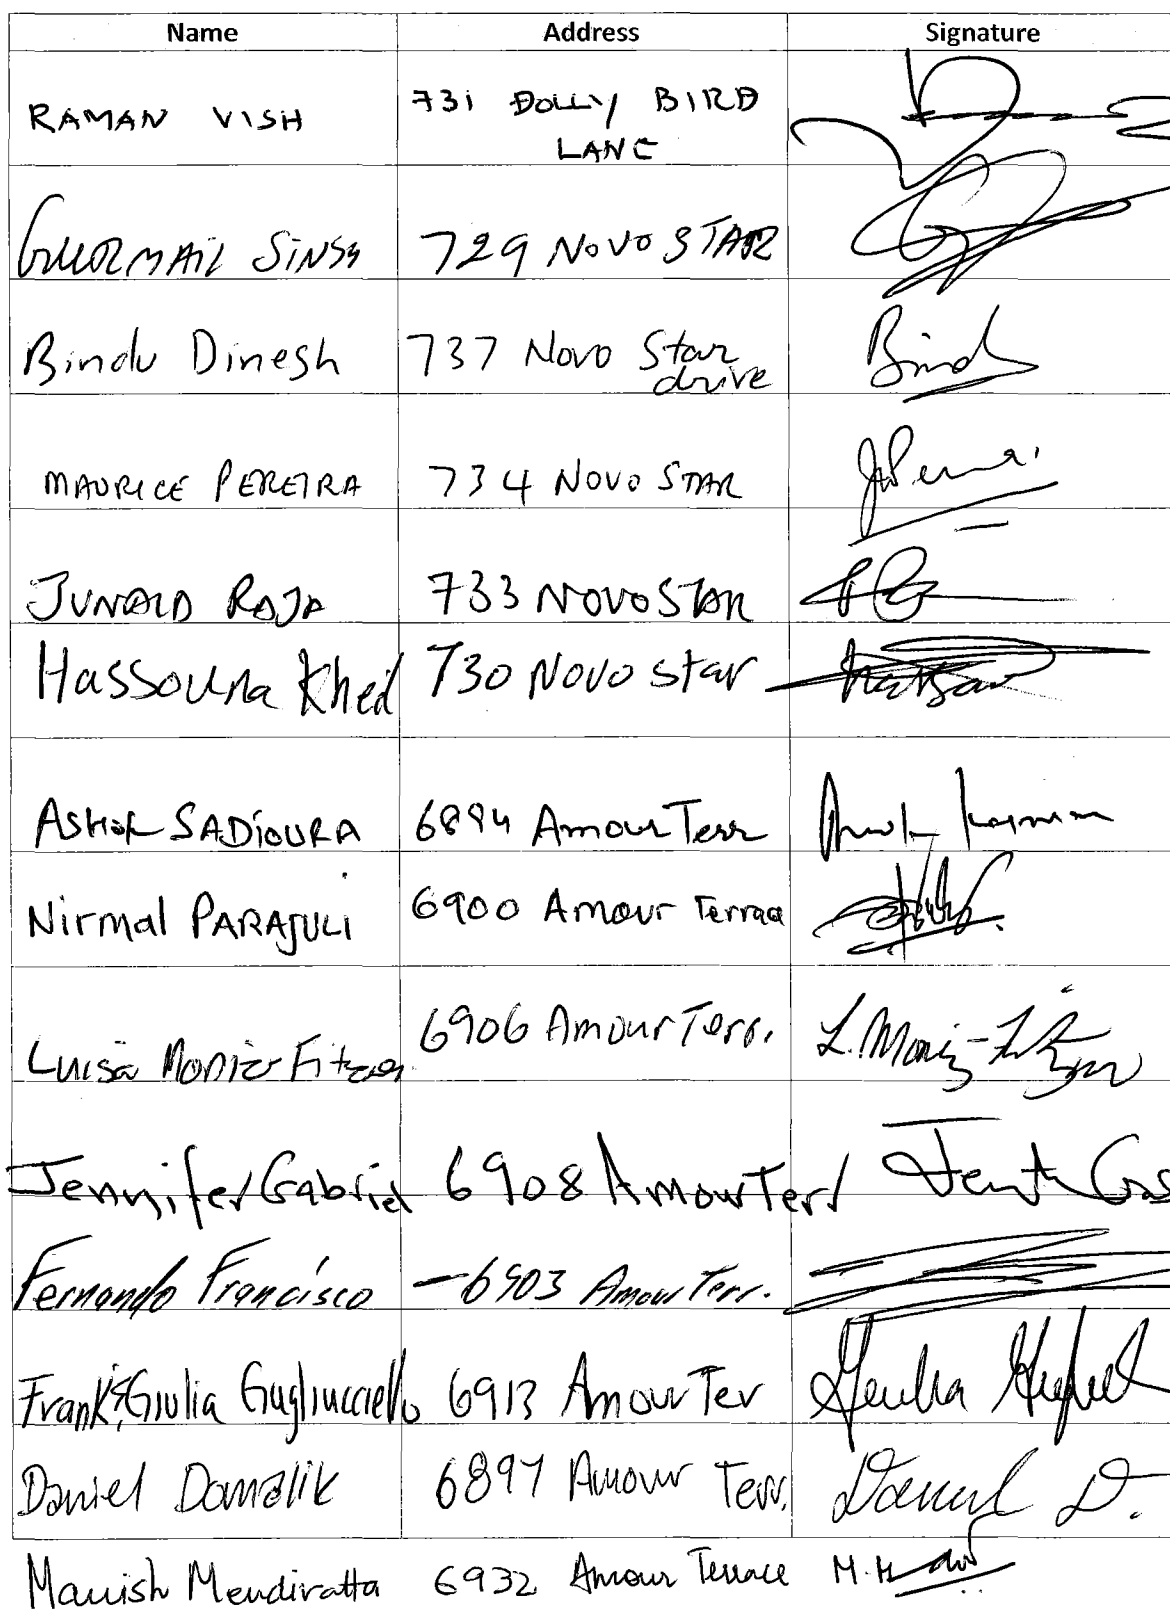 Name Address Signature
RAMAN VISH 731 DOLLY BIRD
LANE
GURMAIL SINGH 729 NOVO STAR
Bindu Dinesh 737 Novo Star Bind
drive
MAURICE PEREIRA 734 NOVO STAR
JUNAID RAJA 733 NOVOSTAR
Hassouna Khed 730 Novo star
ASHOK SADIOURA 6894 Amour Terr
Nirmal PARAJULI 6900 Amour Terrace
Luisa Moniz 6906 Amour Terr. L. Moniz
Jennifer Gabriel 6908 Amour Terr
Fernando Francisco – 6903 Amour Terr.
Frank & Giulia Gugliucciello 6913 Amour Ter Giulia
Daniel 6897 Amour Terr. Daniel D.
Manish Mendiratta 6932 Amour Terrace